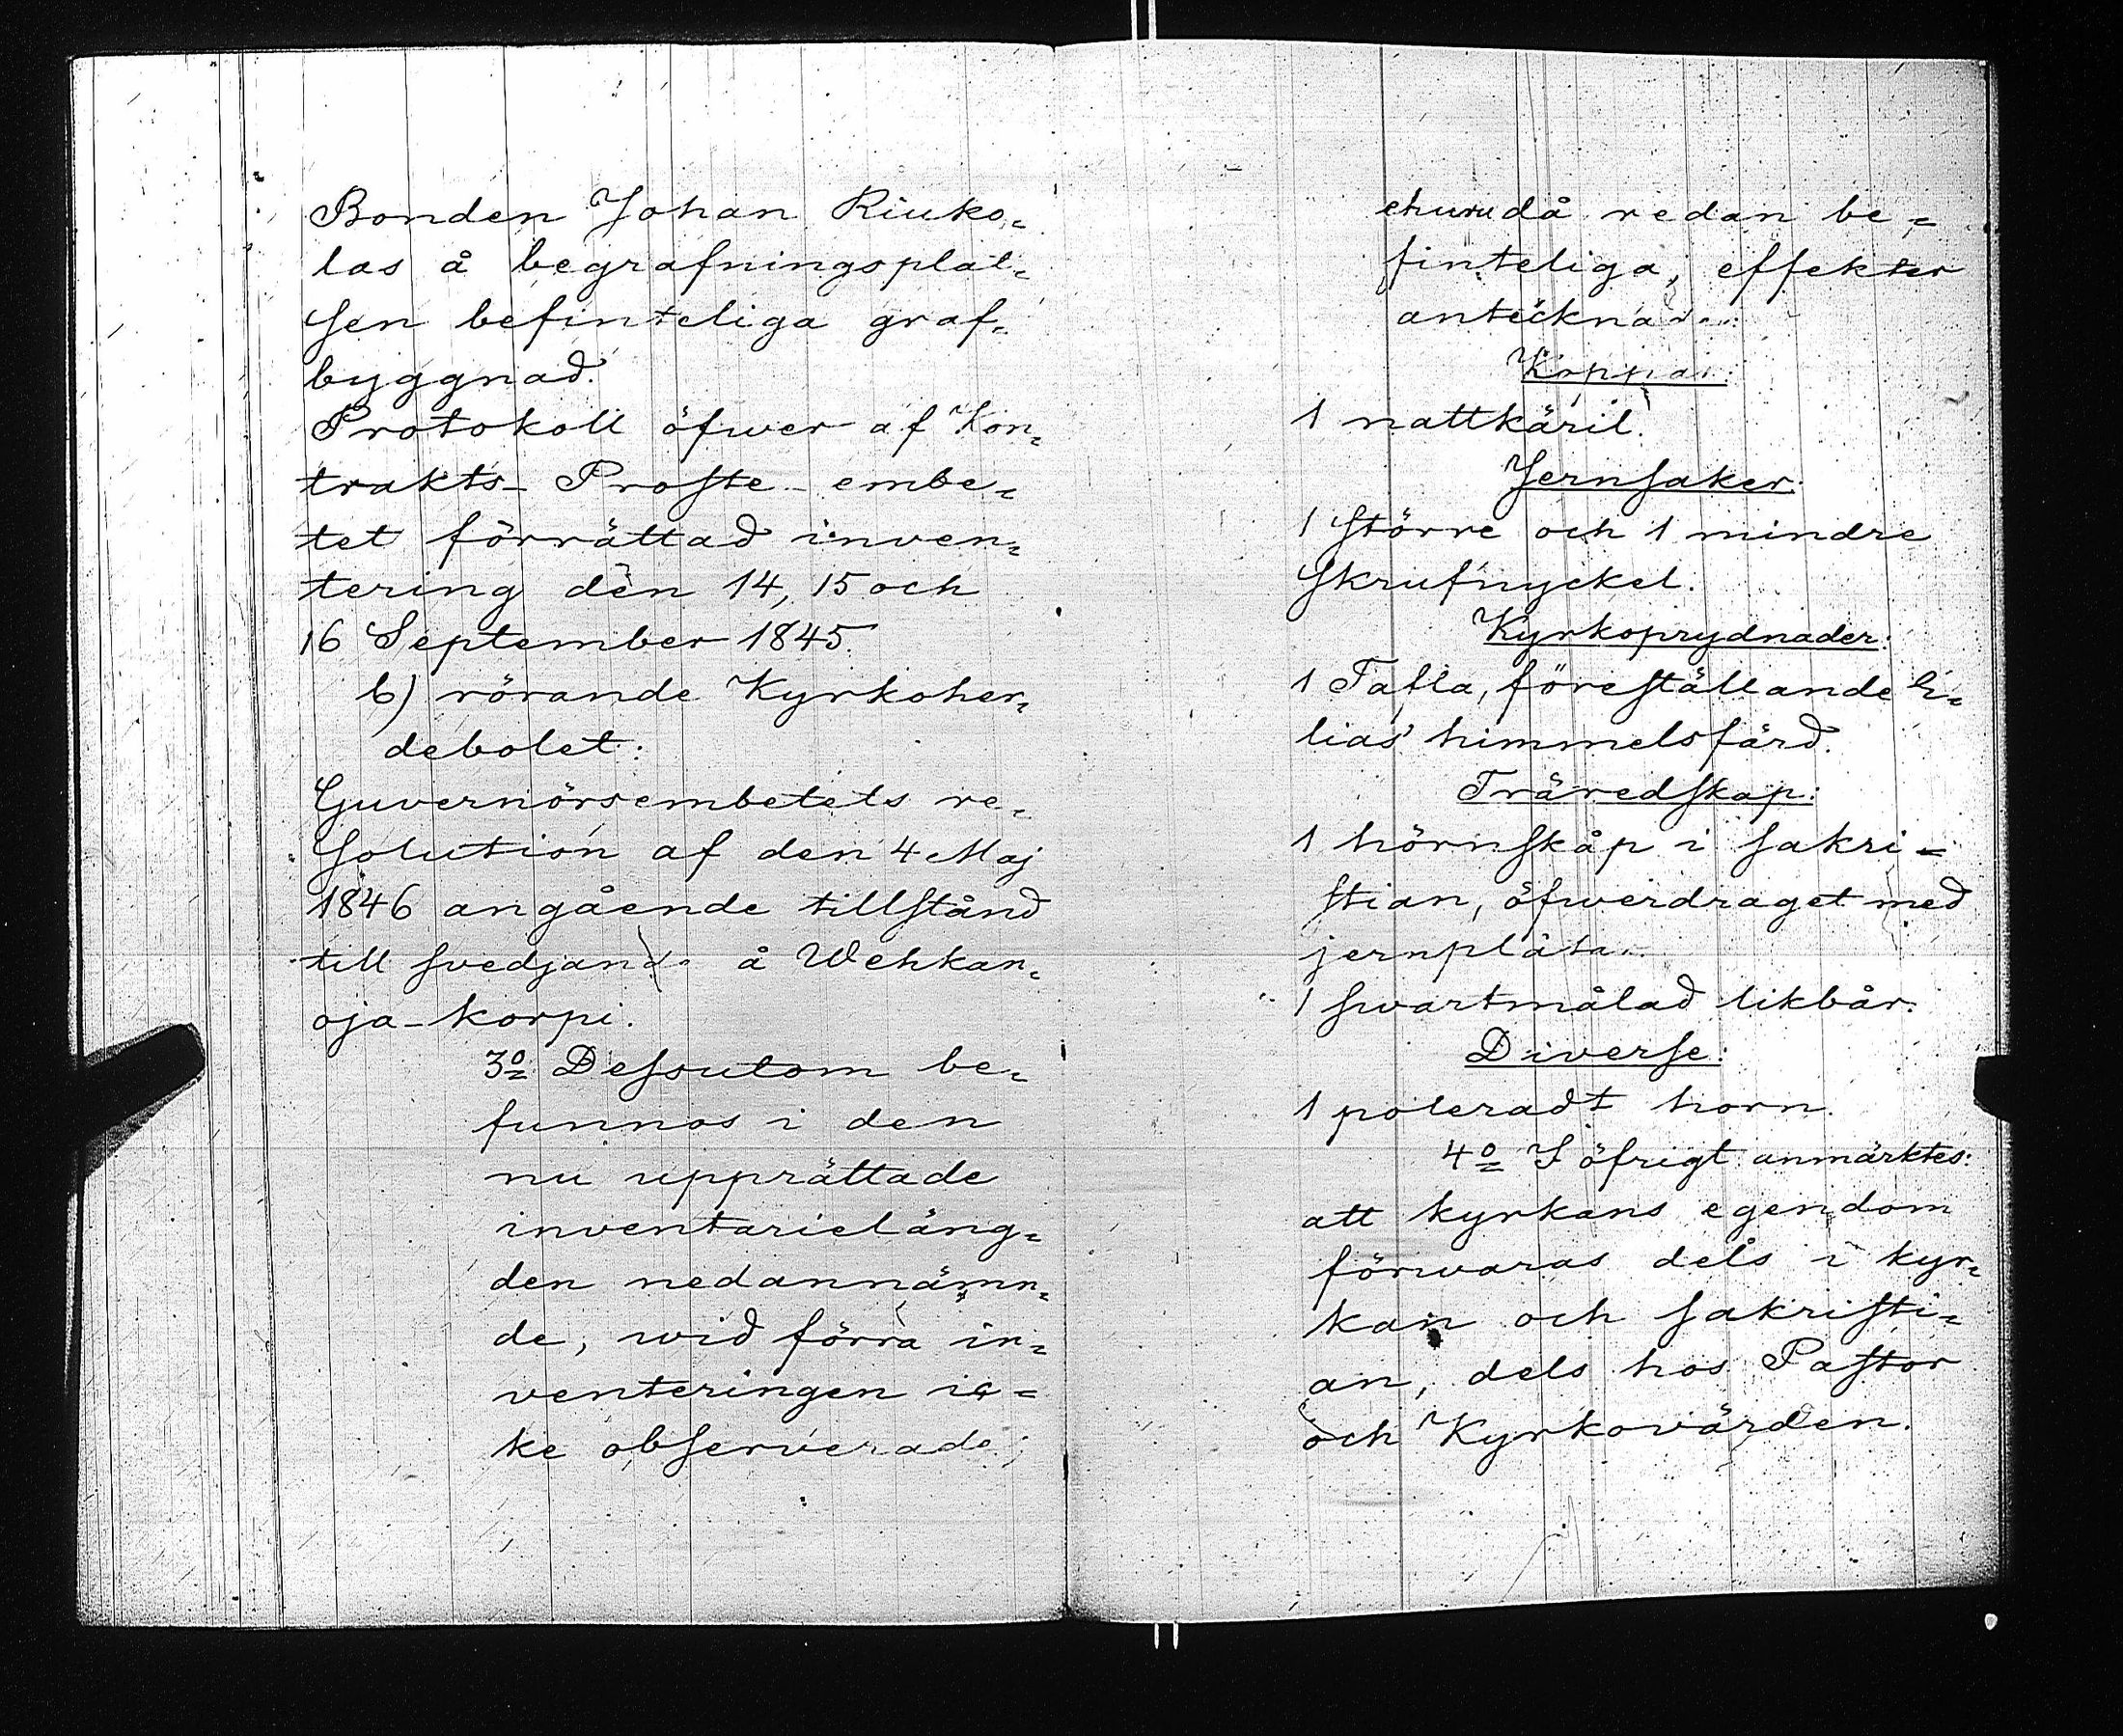 Bonden Johan Riuko-
las å begrafningsplat-
sen befinteliga graf-
byggnad.
Protokoll öfwer af Kon-
trakts-Proste-embe-
tet förrättad inven-
tering den 14, 15 och
16 September 1845.
b) rörande Kyrkoher-
debolet:
Guvernörsembetets re-
solution af den 4 Maj
1846 angående tillstånd
till svedjande å Wehkan-
oja-korpi.
3o Dessutom be-
funnos i den
nu upprättade
inventarieläng-
den nedannämn-
de, wid förra in-
venteringen ic-
ke observerade;
ehuru då redan be-
finteliga, effekter
antecknade:
Koppar:
1 nattkäril.
Jernsaker:
1 större och 1 mindre
skrufnyckel.
Kyrkoprydnader:
1 Tafla, föreställande E-
lias' himmelsfärd.
Träredskap:
1 hörnskåp i sakri-
stian, öfwerdraget med
jernplåtar.
1 swartmålad likbår.
Diverse:
1 poleradt horn.
4o I öfrigt anmärktes:
att kyrkans egendom
förwaras dels i kyr-
kan och sakristi-
an, dels hos Pastor
och Kyrkovärden.